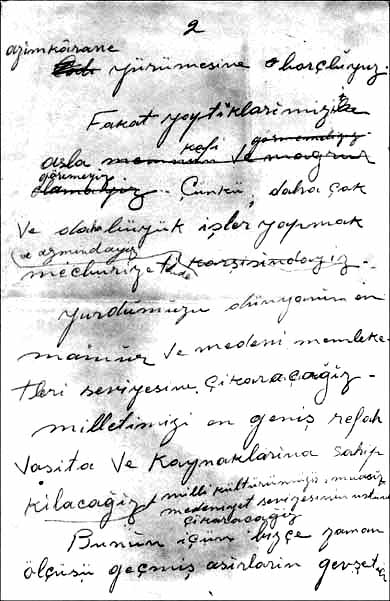 2
azimkârane
yürümesine borçluyuz.
Fakat yaptıklarımızı
asla kafi
göremeyiz. Çünkü, daha çok
ve daha büyük işler yapmak
mecburiyetinde
ve azmindeyiz
karşısındayız -
Yurdumuzu dünyanın en
mamûr ve medeni memleke-
tleri seviyesine çıkaracağız -
milletimizi en geniş refah
vasıta ve kaynaklarına sahip
kılacağız
milli kültürümüzü, muasır
medeniyet seviyesinin üstüne
çıkaracağız
Bunun için bizce zaman
ölçüsü geçmiş asırların gevşetici